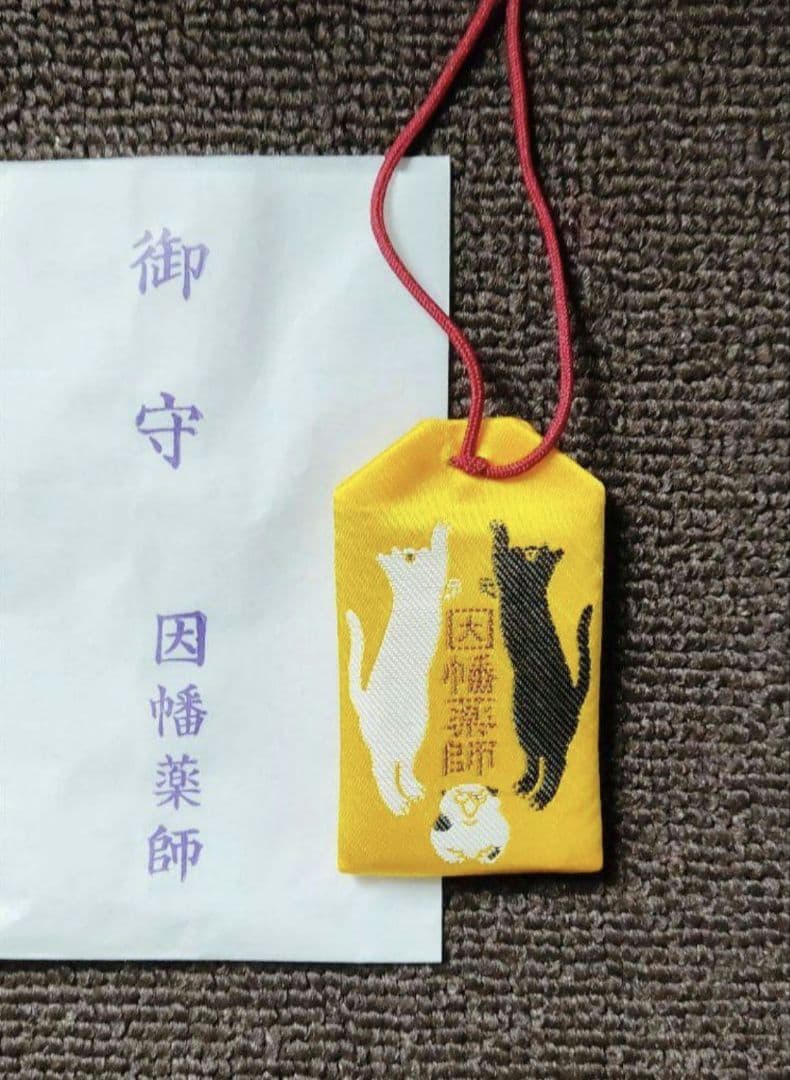 御守
因幡薬師
因幡薬師